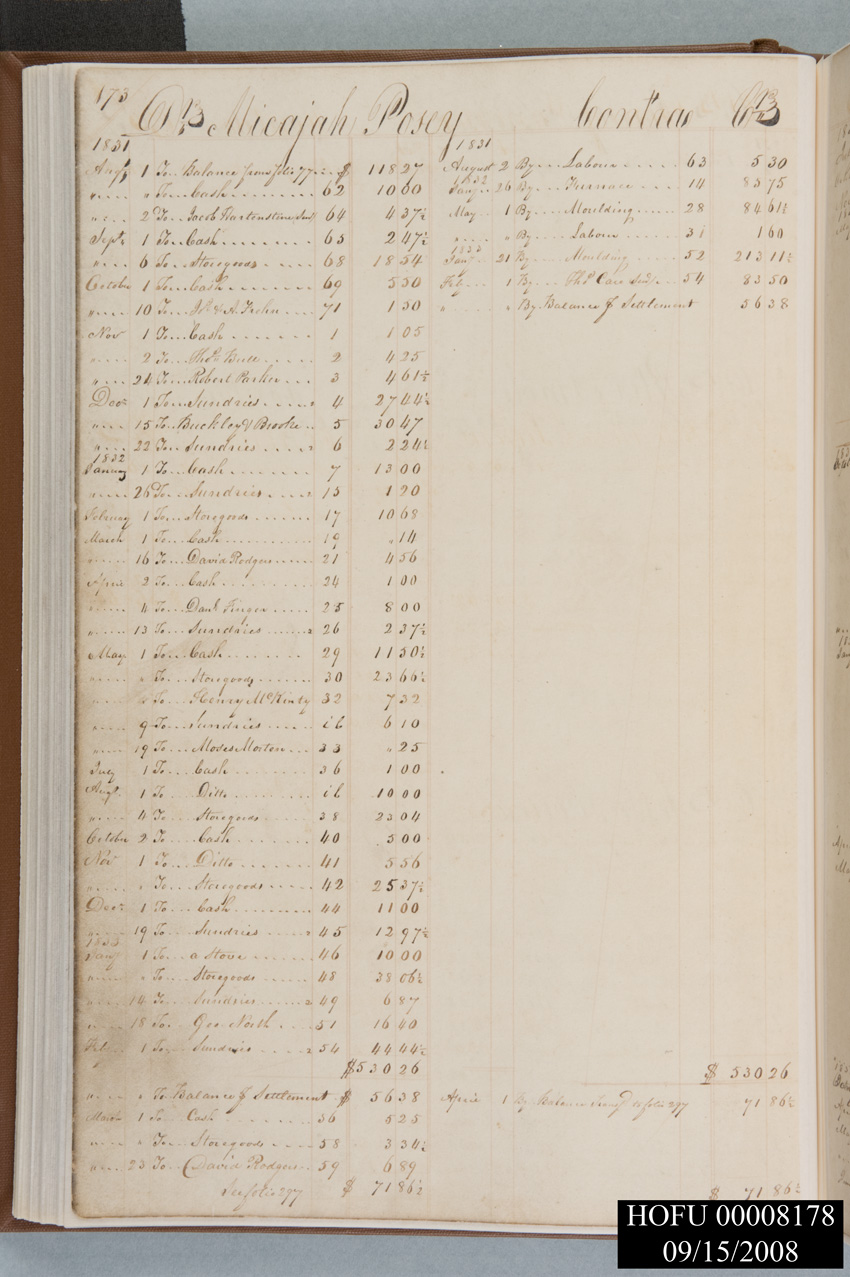 173
Dr Micajah Posey Contra Cr
1831
Augt 1 To Balance from folio 77 $ 118 27
" " To Cash 62 10 60
" 2 To Jacob Hartenstine 64 4 37½
Sept 1 To Cash 65 2 47½
" 6 To Storegoods 68 18 54
October 1 To Cash 69 5 50
" 10 To & A. 71 1 50
Nov 1 To Cash 1 1 05
" 2 To Thos Bull 2 4 25
" 24 To Robert Parker 3 4 61½
Decr 1 To Sundries 4 27 44½
" 15 To Buckley & Brooke 5 30 47
" 22 To Sundries 6 2 24½
1832
January 1 To Cash 7 13 00
" 26 To Sundries 15 1 20
February 1 To Storegoods 17 10 68
March 1 To Cash 19 " 14
" 16 To David Rodgers 21 4 56
April 2 To Cash 24 1 00
" 11 To Danl Finger 25 8 00
" 13 To Sundries 26 2 37½
May 1 To Cash 29 11 50½
" " To Storegoods 30 23 66½
" " To Henry McKinty 32 7 32
" 9 To Sundries ib 6 10
" 19 To Modes Morton 33 " 25
July 1 To Cash 36 1 00
Augt 1 To Ditto ib 10 00
" 11 To Storegoods 38 23 04
October 2 To Cash 40 5 00
Nov 1 To Ditto 41 5 56
" " To Storegoods 42 25 37½
Decr 1 To Cash 44 11 00
" 19 To Sundries 45 12 97½
1833
Jany 1 To a Stove 46 10 00
" " To Storegoods 48 38 06½
" 14 To Sundries 49 6 87
" 18 To Geo North 51 16 40
Feb 1 To Sundries 54 44 44½
$530 26
" " To Balance of Settlement $ 56 38
March 1 To Cash 56 5 25
" " To Storegoods 58 3 34½
" 23 To David Rodgers 59 6 89
See folio 297 $ 71 86½
1831
August 2 By Labour 63 5 30
1832
Jany 26 By Furnace 14 85 75
May 1 By Moulding 28 84 61½
" " By Labour 31 1 60
1833
Jany 21 By Moulding 52 213 11½
Feb 1 By Thos Care 54 83 50
" " By Balance of Settlement 56 38
$ 530 26
April 1 By Balance Transfd to folio 297 71 86½
$ 71 86½
HOFU 00008178
09/15/2008